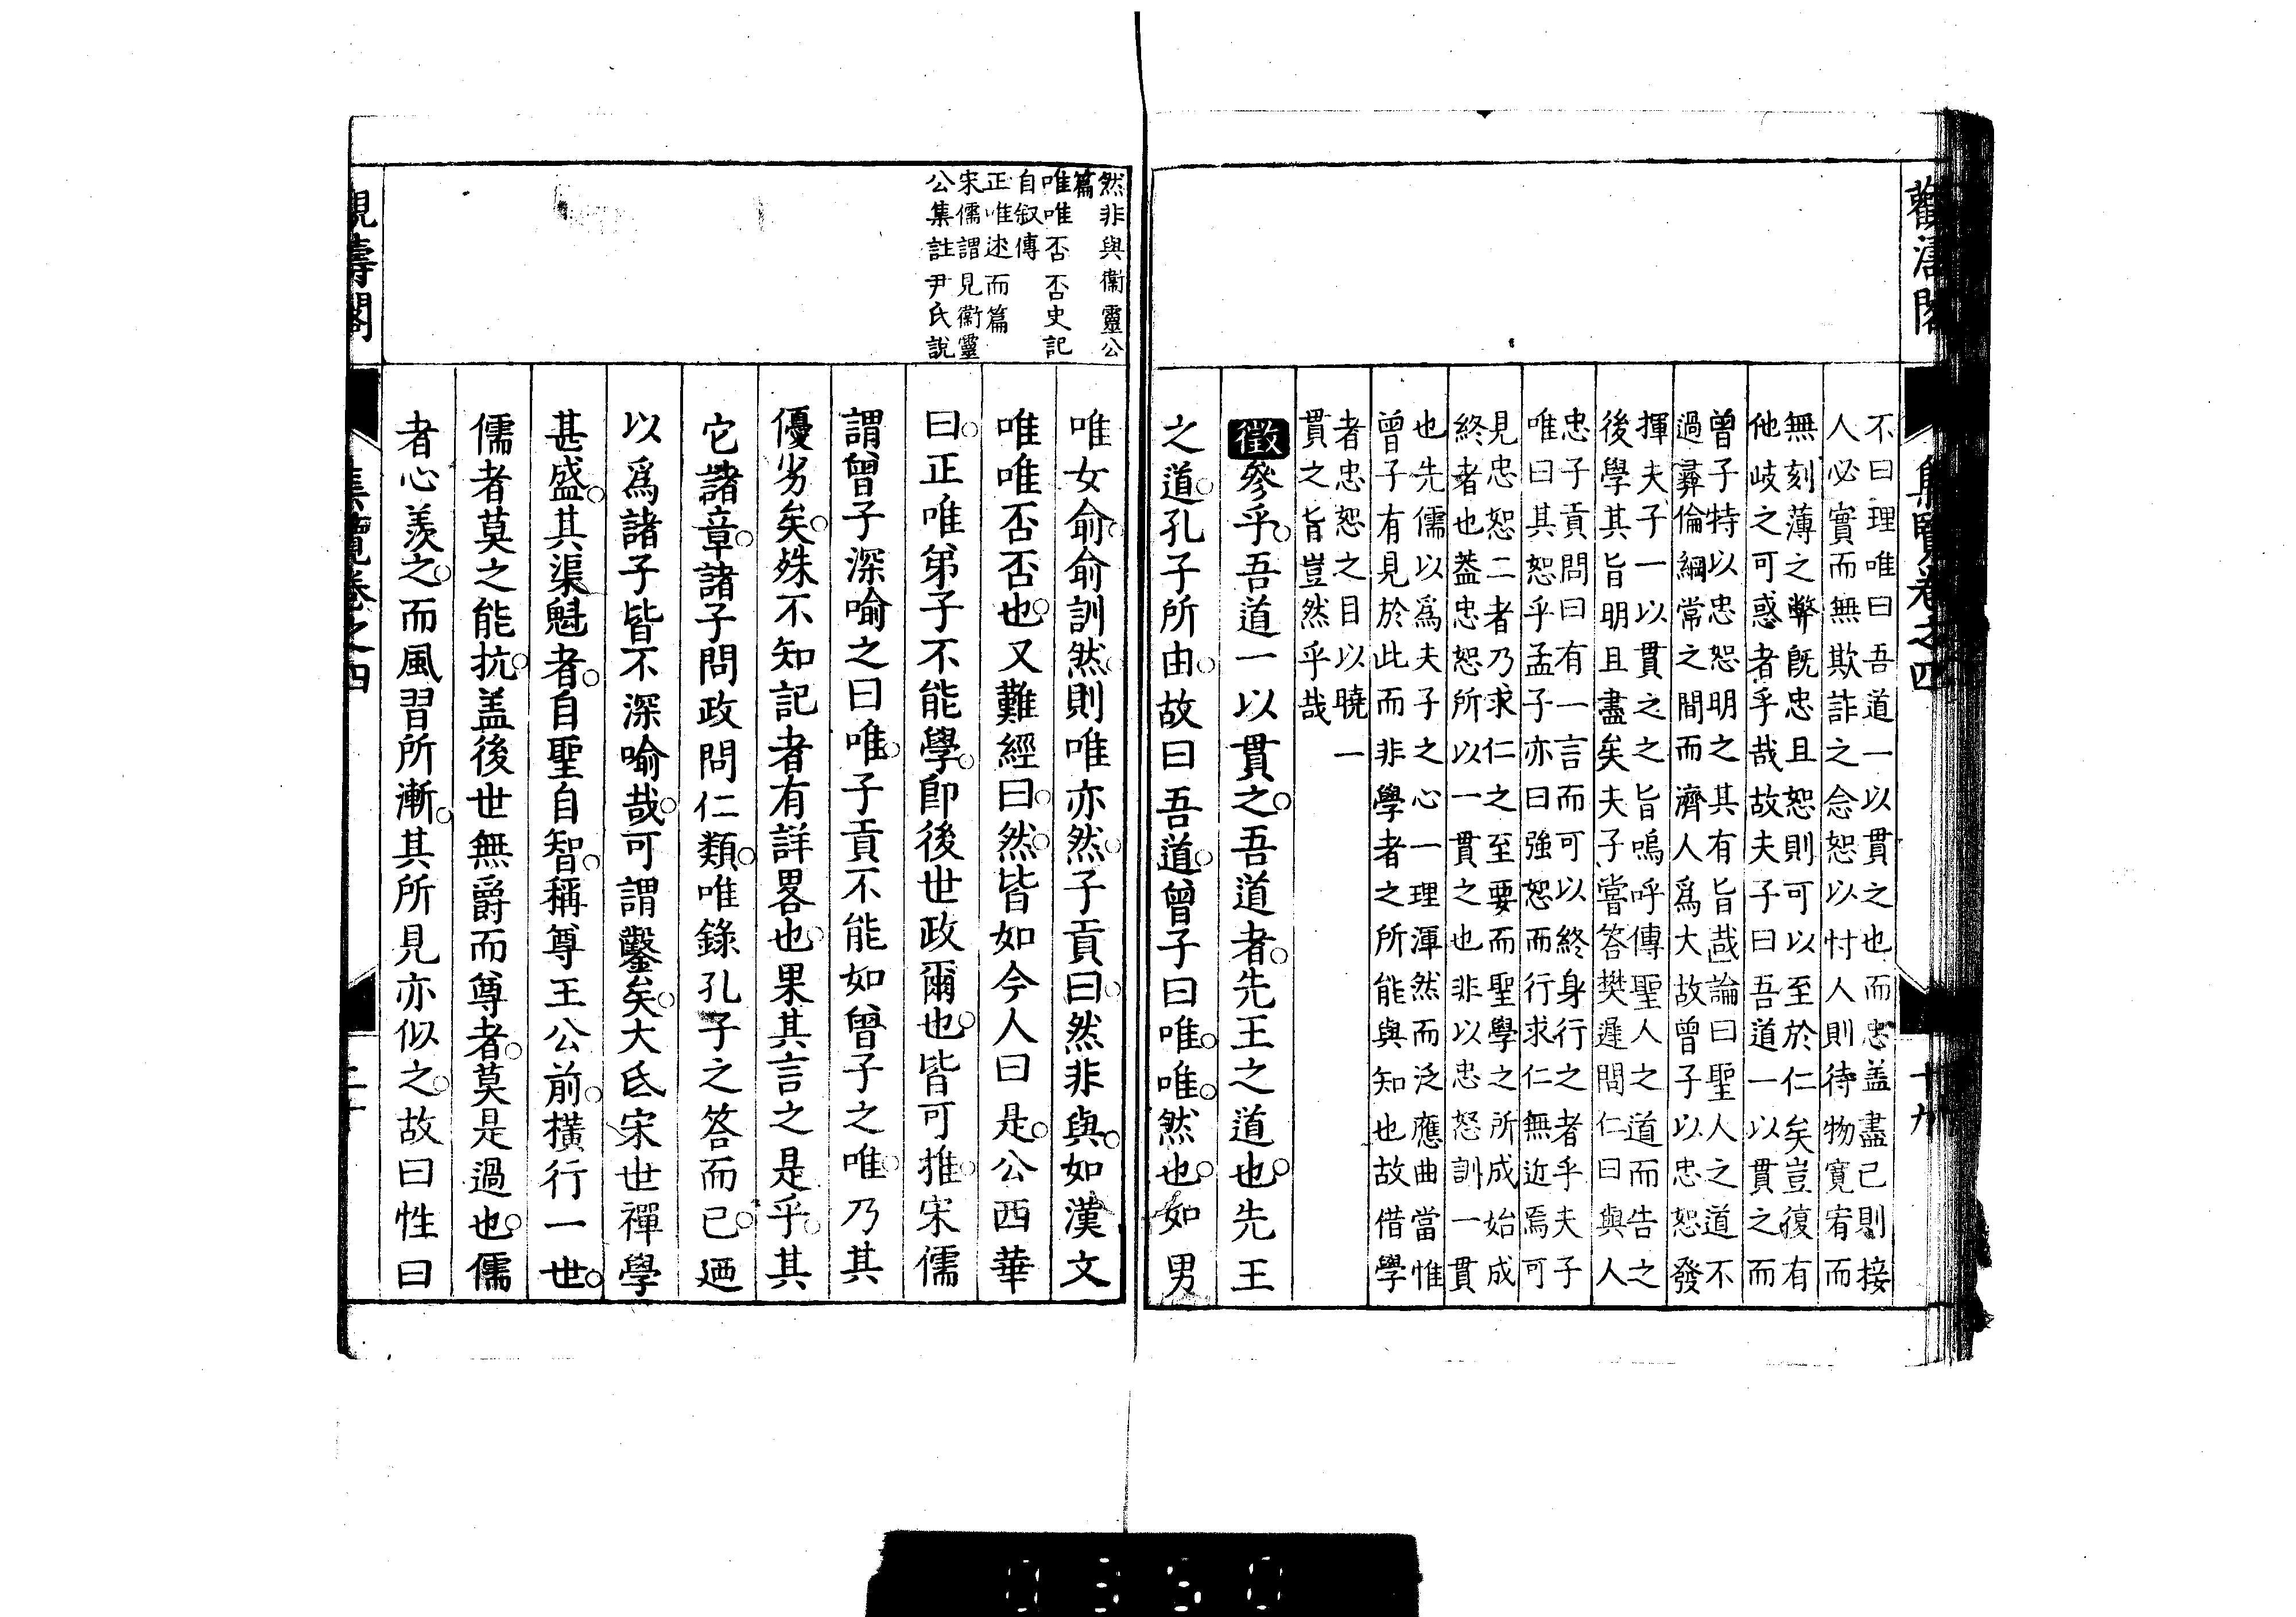 觀濤閣
集覽卷之四
十九
不曰理唯曰吾道一以貫之也而忠盖盡己則接
人必實而無欺詐之念恕以忖人則待物寬宥而
無刻薄之弊旣忠且恕則可以至於仁矣豈復有
他岐之可惑者乎哉故夫子曰吾道一以貫之而
曾子特以忠恕明之其有旨哉論曰聖人之道不
過彝倫綱常之間而濟人爲大故曾子以忠恕發
揮夫子一以貫之之旨嗚呼傳聖人之道而告之
後學其旨明且盡矣夫子嘗答樊遲問仁曰與人
忠子貢問曰有一言而可以終身行之者乎夫子
唯曰其恕乎孟子亦曰強恕而行求仁無近焉可
見忠恕二者乃求仁之至要而聖學之所成始成
終者也葢忠恕所以一貫之也非以忠恕訓一貫
也先儒以爲夫子之心一理渾然而泛應曲當惟
曾子有見於此而非學者之所能與知也故借學
者忠恕之目以曉一
貫之旨豈然乎哉
徵參乎吾道一以貫之吾道者先王之道也先王
之道孔子所由故曰吾道曾子曰唯唯然也如男
然非與衞靈公
篇
唯唯否否史記
自叙傳
正唯述而篇
宋儒謂見衞靈
公集註尹氏說
唯女俞俞訓然則唯亦然子貢曰然非與如漢文
唯唯否否也又難經曰然皆如今人曰是公西華
曰正唯弟子不能學卽後世政爾也皆可推宋儒
謂曾子深喻之曰唯子貢不能如曾子之唯乃其
優劣矣殊不知記者有詳畧也果其言之是乎其
它諸章諸子問政問仁類唯錄孔子之答而已廼
以爲諸子皆不深喻哉可謂鑿矣大氐宋世禪學
甚盛其渠魁者自聖自智稱尊王公前橫行一世
儒者莫之能抗盖後世無爵而尊者莫是過也儒
者心羨之而風習所漸其所見亦似之故曰性曰
觀濤閣
集覽卷之四
二十
0350